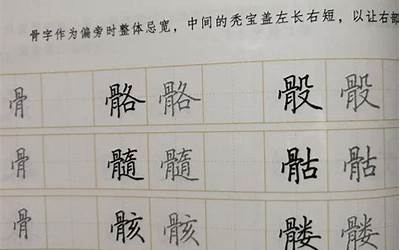 骨字作为偏旁时整体忌宽，中间的秃宝盖左长右短，以让右部
骨 骼 骼 骰 骰
骨 髓 髓 骷 骷
骨 骸 骸 髅 髅